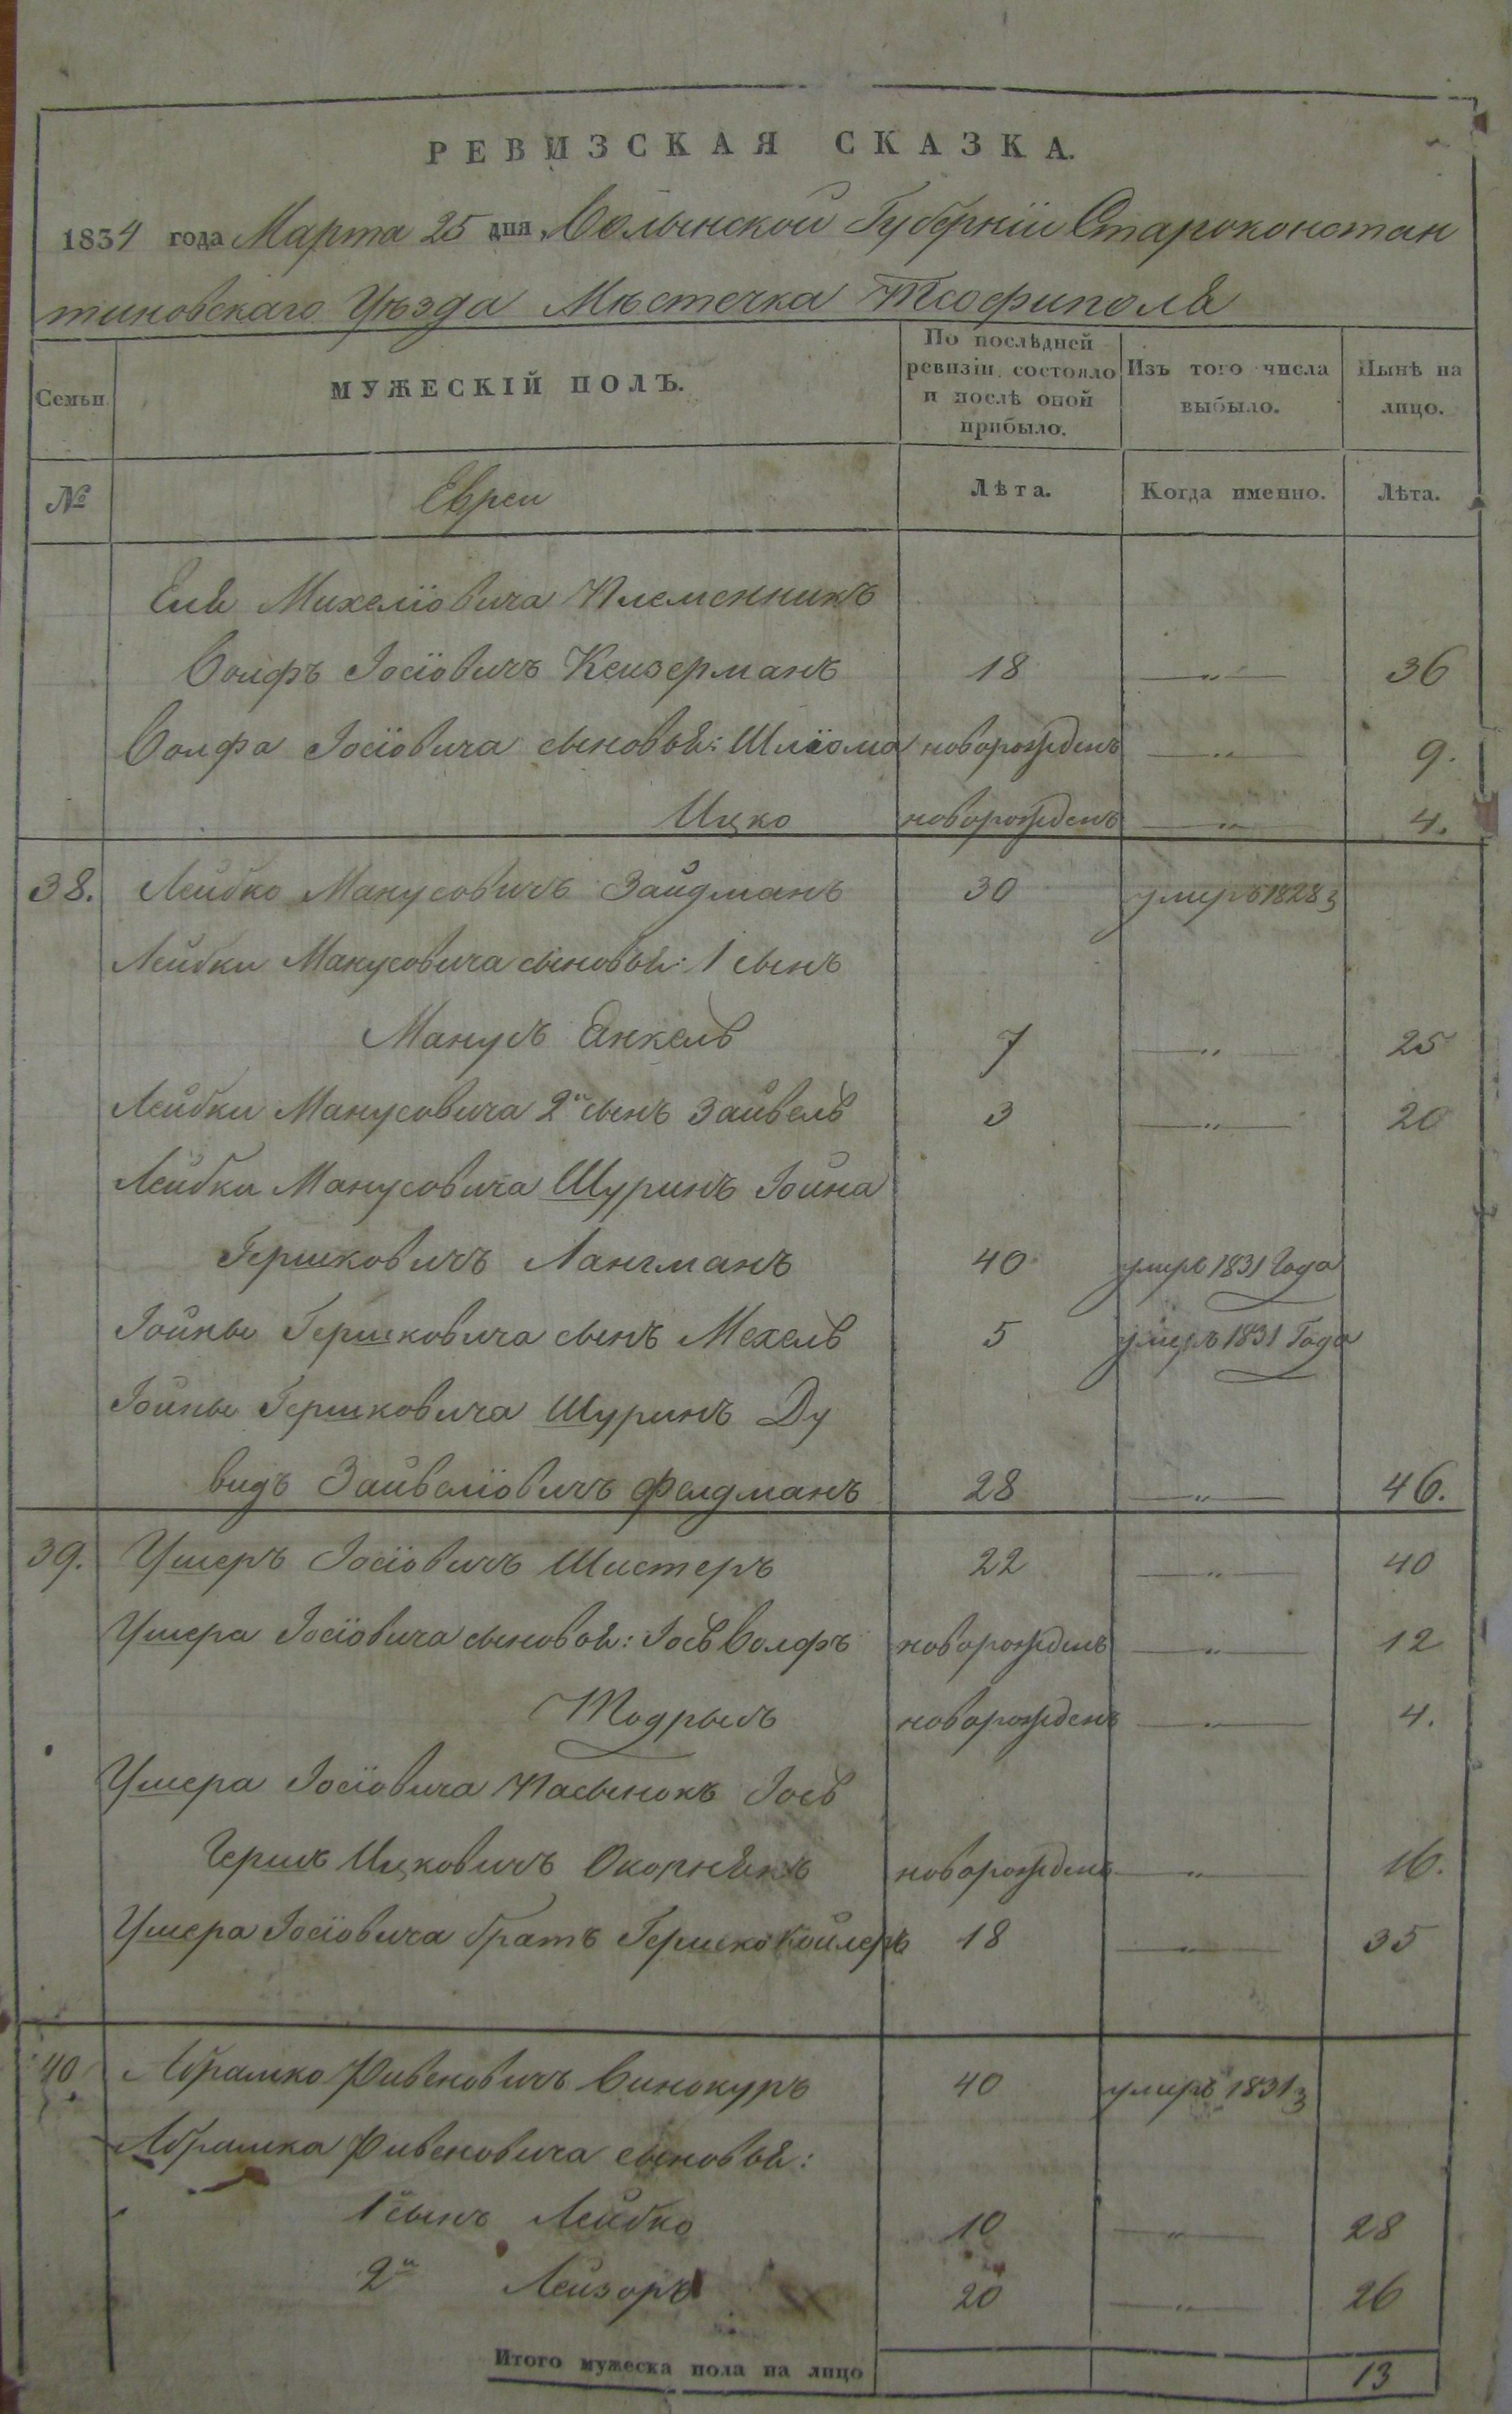 РЕВИЗСКАЯ СКАЗКА.
1834 года Марта 25 дня, Волынской Губерніи Староконстан
тиновскаго Уѣзда Мѣстечка Теофиполя
Семьи
МУЖЕСКІЙ ПОЛЪ.
По послѣдней ревизіи состояло и послѣ оной прибыло.
Изъ того числа выбыло.
Нынѣ на лицо.
№ Евреи Лѣта. Когда именно. Лѣта.
Еля Михелїовича Племенникъ
Волфъ Іосїовичъ Кеизерманъ 18 —"— 36
Волфа Іосїовича сыновья: Шлїома новорожденъ —"— 9.
Ицко новорожденъ —"— 4.
38. Лейбко Манусовичъ Зайдманъ 30 умеръ 1828 г
Лейбки Манусовича сыновья: 1 сынъ
Манусъ Янкель 7 —"— 25
Лейбки Манусовича 2й сынъ Зайвель 3 —"— 20
Лейбки Манусовича Шуринъ Іойна
Гершковичъ Лангманъ 40 умеръ 1831 Года
Іойны Гершковича сынъ Мехель 5 умеръ 1831 Года
Іойны Гершковича Шуринъ Ду
видъ Зайвелїовичъ Фелдманъ 28 —"— 46.
39. Ушеръ Іосїовичъ Шистеръ 22 —"— 40
Ушера Іосїовича сыновья: Іось Волфъ новорожденъ —"— 12
Тодрысъ новорожденъ —"— 4.
Ушера Іосїовича Пасынокъ Іось
Гершъ Ицковичъ Окорнякъ новорожденъ —"— 16.
Ушера Іосїовича братъ Гершко Койлеръ 18 —"— 35
40. Абрамко Ривеновичъ Винокуръ 40 умеръ 1831 г
Абрамка Ривеновича сыновья:
1й сынъ Лейбко 10 —"— 28
2й Лейзоръ 20 —"— 26
Итого мужеска пола на лицо 13